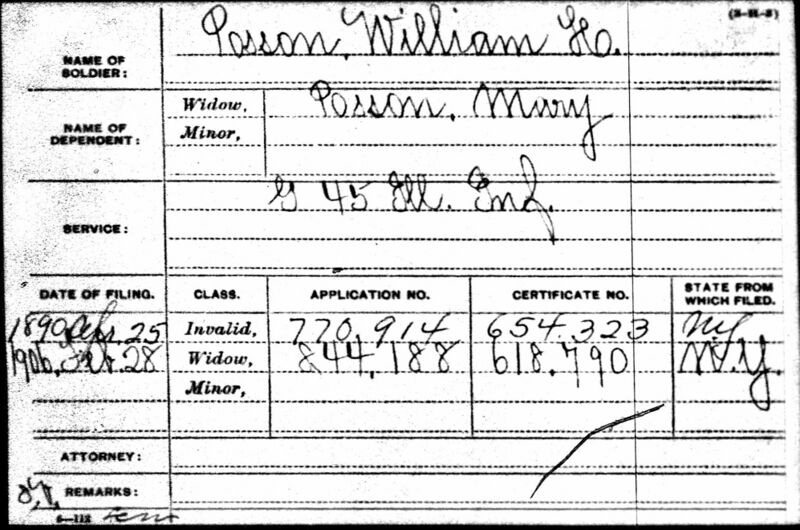 (3-H-3)
NAME OF SOLDIER: Posson, William H.
NAME OF DEPENDENT: Widow, Posson, Mary
Minor,
SERVICE: G 45 Ill. Inf.
DATE OF FILING. CLASS. APPLICATION NO. CERTIFICATE NO. STATE FROM WHICH FILED.
1890 Apr. 25 Invalid, 770,914 654.323 NY
1906, 28 Widow, 844,188 618,790 N.Y.
Minor,
ATTORNEY:
REMARKS: